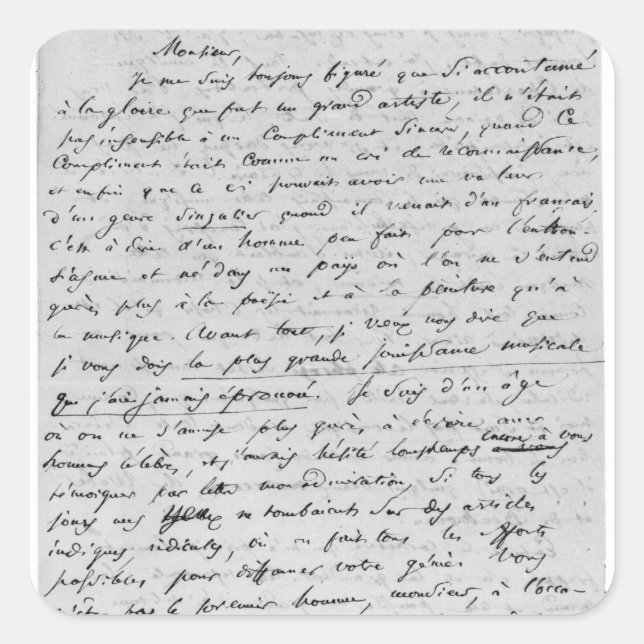 Monsieur,
Je me suis toujours figuré que si accoutumé
à la gloire que fut un grand artiste, il n'était
pas insensible à un compliment sincère, quand ce
compliment était comme un cri de reconnaissance,
et enfin que ce cri pouvait avoir une valeur
d'un genre singulier quand il venait d'un français,
c'est à dire d'un homme peu fait pour l'enthou
siasme et né dans un pays où l'on ne s'entend
guères plus à la poësie et à la peinture qu'à
la musique. Avant tout, je veux vous dire que
je vous dois la plus grande jouissance musicale
que j'aie jamais éprouvée. Je suis d'un âge
où on ne s'amuse plus guères à écrire aux
hommes célèbres, et j'aurais hésité longtemps encore à vous
témoigner par lettre mon admiration, si tous les
jours mes yeux ne tombaient sur des articles
indignes, ridicules, où on fait tous les efforts
possibles pour diffamer votre génie. Vous
n'êtes pas le premier homme, monsieur, à l'occa-